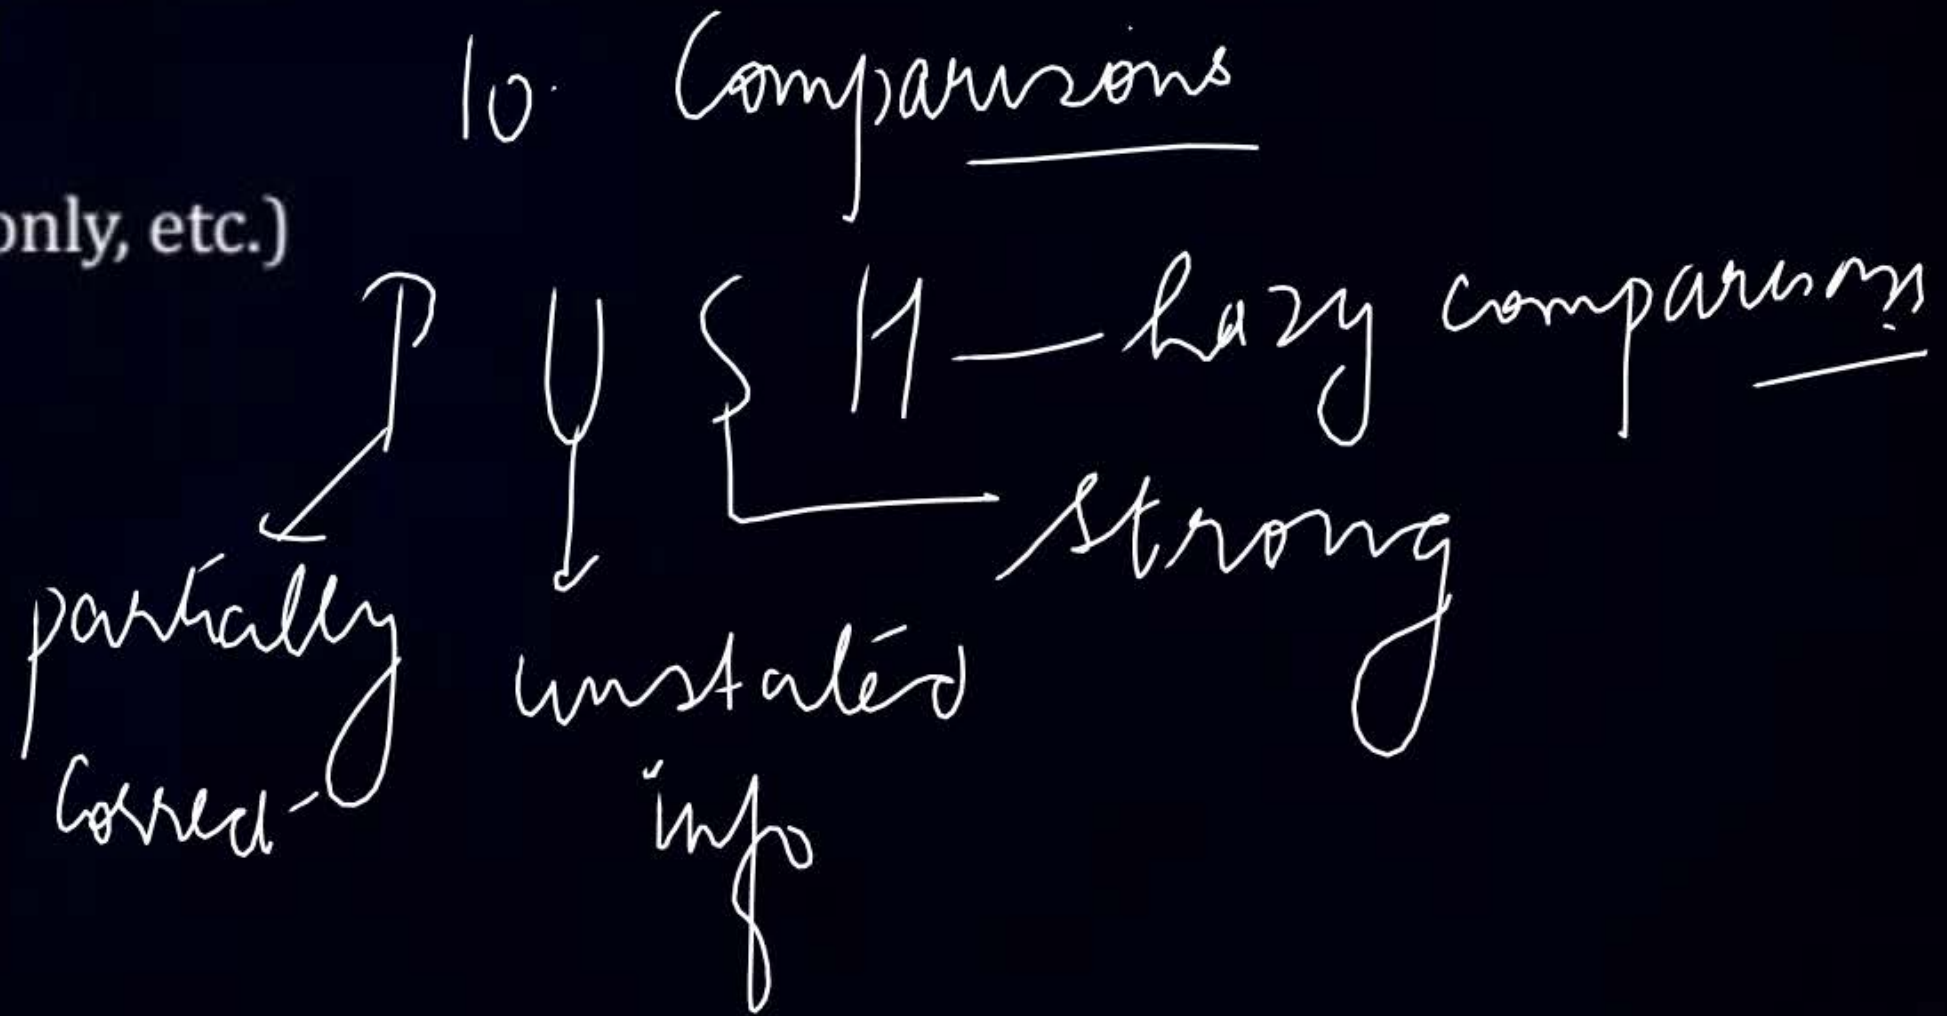 10. Comparisons
only, etc.)
P U S H — hazy comparisons
strong
partially
correct
unstated
info